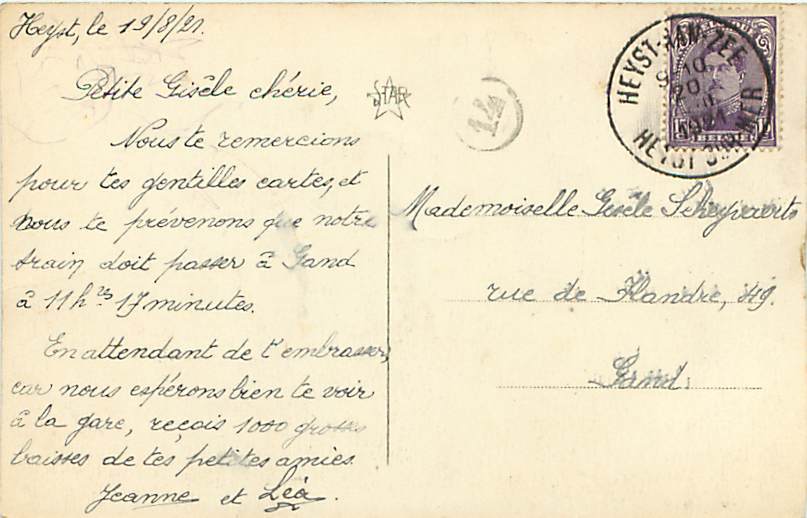 Heyst, le 19/8/21.
Petite Gisèle chérie,
Nous te remercions
pour tes gentilles cartes, et
nous te prévenons que notre
train doit passer à Gand
à 11 hrs 17 minutes.
En attendant de t'embrasser,
car nous espérons bien te voir
à la gare, reçois 1000 grosses
baisses de tes petites amies.
Jeanne et Léa.
STAR
14
HEYST-AAN-ZEE
9-10
20
1921
HEYST-SUR-MER
Mademoiselle Gisèle Scheypaerts
rue de Flandre, 49.
Gand.